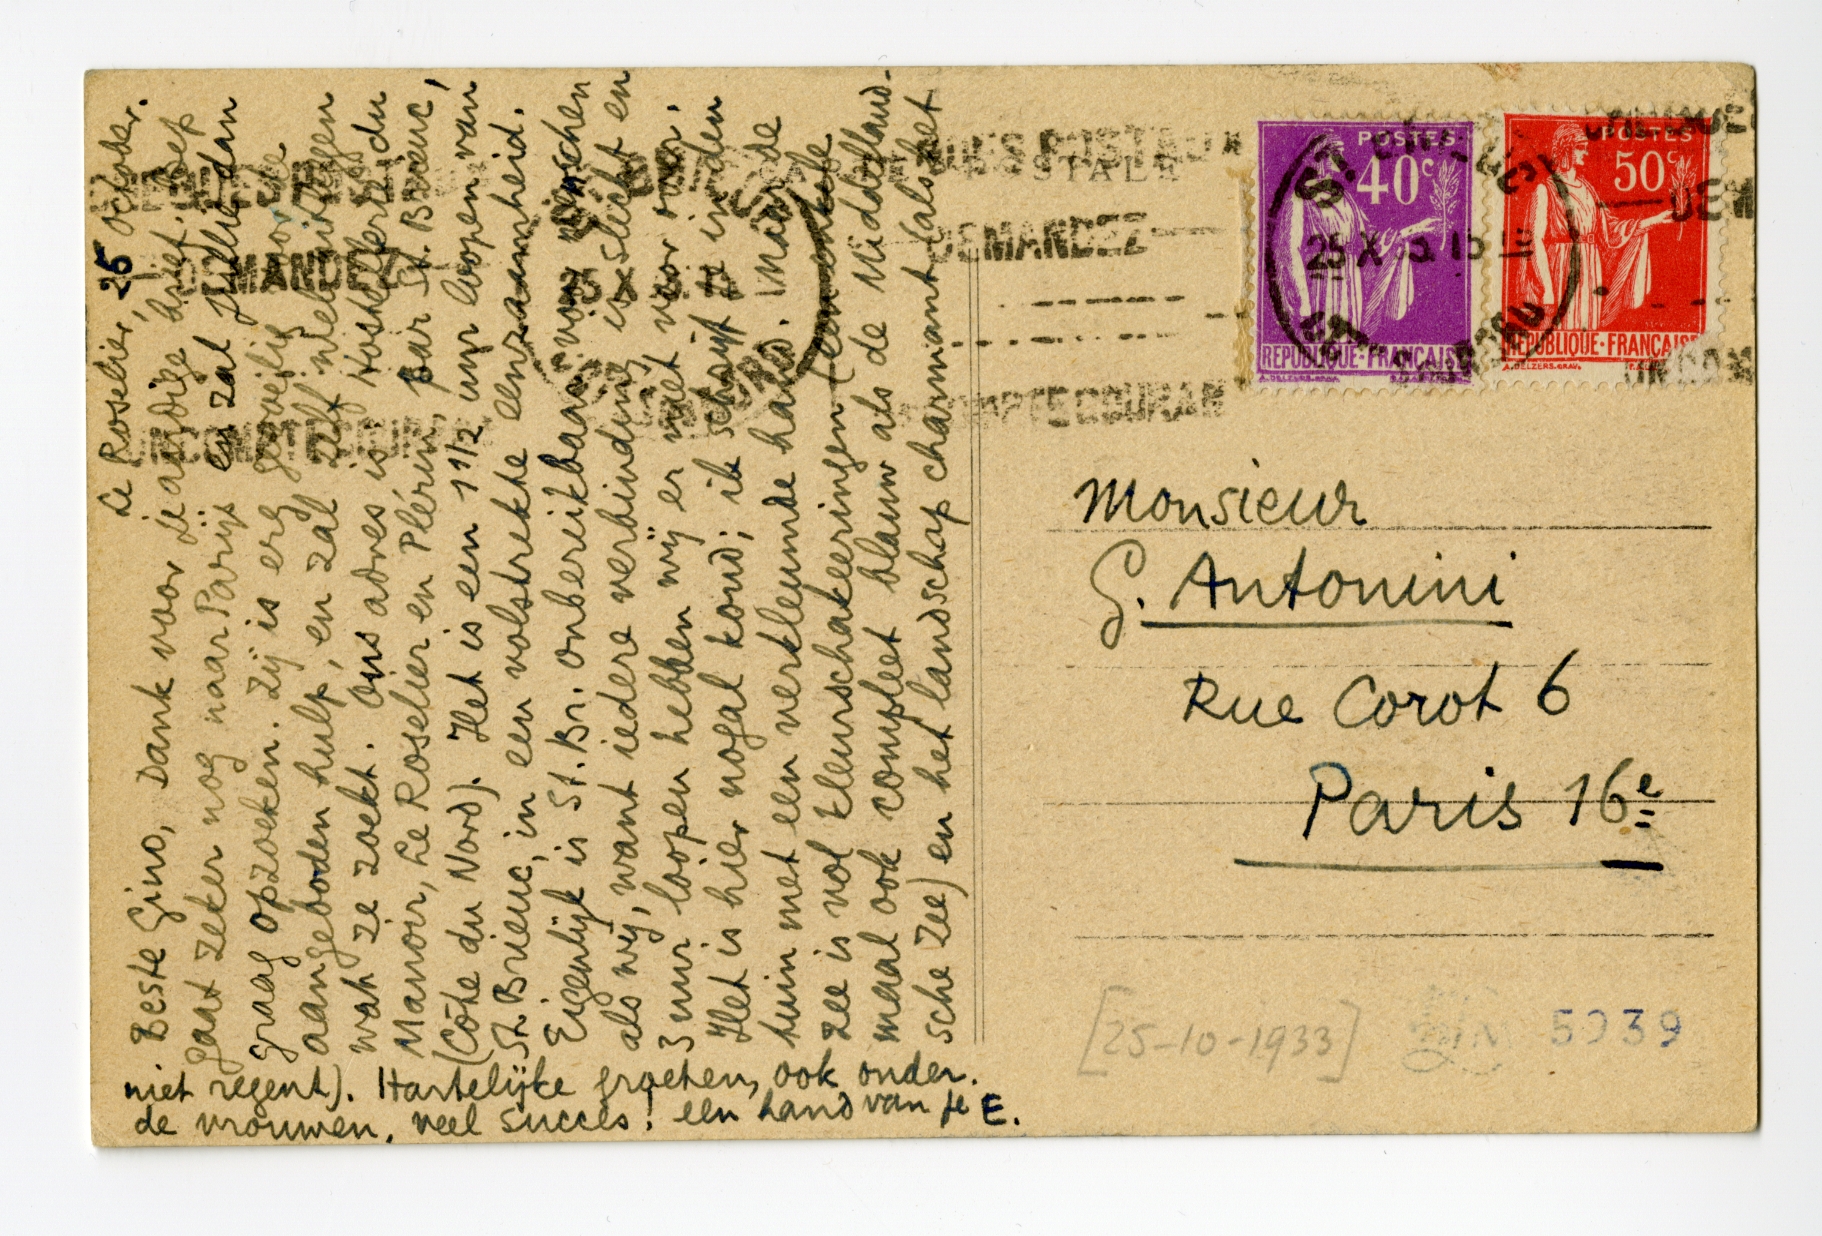 Le Roselier, 25 October.
Beste Gino, Dank voor je aardige brief. Bep
gaat zeker nog naar Parijs en zal jullie dan
graag opzoeken. Zij is erg gevoelig voor de
aangeboden hulp, en zal zelf wel zien of zeggen
wat ze zoekt. Ons adres is Hostellerie du
Manoir, Le Roselier en Plérin, par St. Brieuc,
(Côte du Nord). Het is een 1 1/2 uur loopen van
St. Brieuc, in een volstrekte eenzaamheid.
Eigenlijk is St. Br. onbereikbaar voor menschen
als wij, want iedere verbinding is slecht en
3 uur loopen hebben wij er niet voor over.
Het is hier nogal koud; ik schrijf je in den
tuin met een verkleumde hand. Maar de
zee is vol kleurschakeeringen (een enkele
maal ook compleet blauw als de Middelland-
sche Zee) en het landschap charmant (als het
niet regent). Hartelijke groeten, ook onder
de vrouwen, veel succes! een hand van je E.
POSTALE
CHÈQUES POSTAUX
DEMANDEZ
UN COMPTE COURANT
DEMANDEZ
COMPTE COURANT
25 X
POSTES
40c
REPUBLIQUE·FRANÇAISE
POSTES
50c
REPUBLIQUE·FRANÇAISE
Monsieur
G. Antonini
Rue Corot 6
Paris 16e
[25-10-1933]
5939